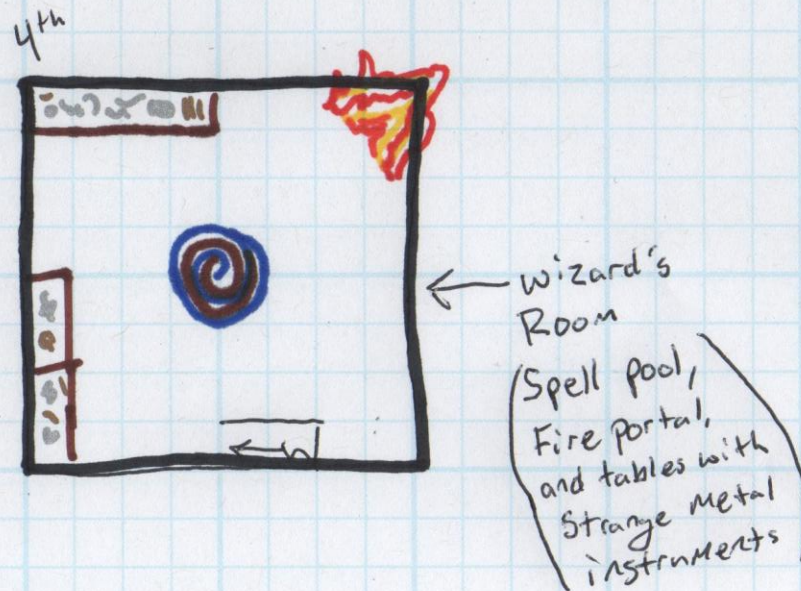 4th
wizard's
Room
(Spell pool,
Fire portal,
and tables with
Strange metal
instruments)